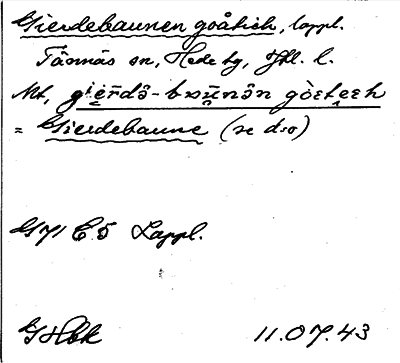 Gierdebaunen goåtieh, lappl.
Tännäs sn, Hede tg, Jtl. l.
Mt, gi̯e̮r̄də̂-bᴋū̮nə̂n gòɛtḙɛh
= Gierdebaune (se d:o)
G 71 C 5 Lappl.
GHbk 11.07.43